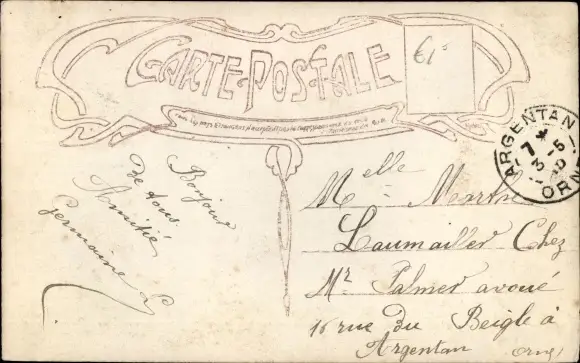 CARTE-POSTALE
61
Bonjour
De tous.
Amitié
Germaine L
ARGENTAN
7 *
3-5
ORNE
Melle Marthe
Laumailler Chez
Mr Palmer avoué
16 rue du Beigle à
Argentan Orne